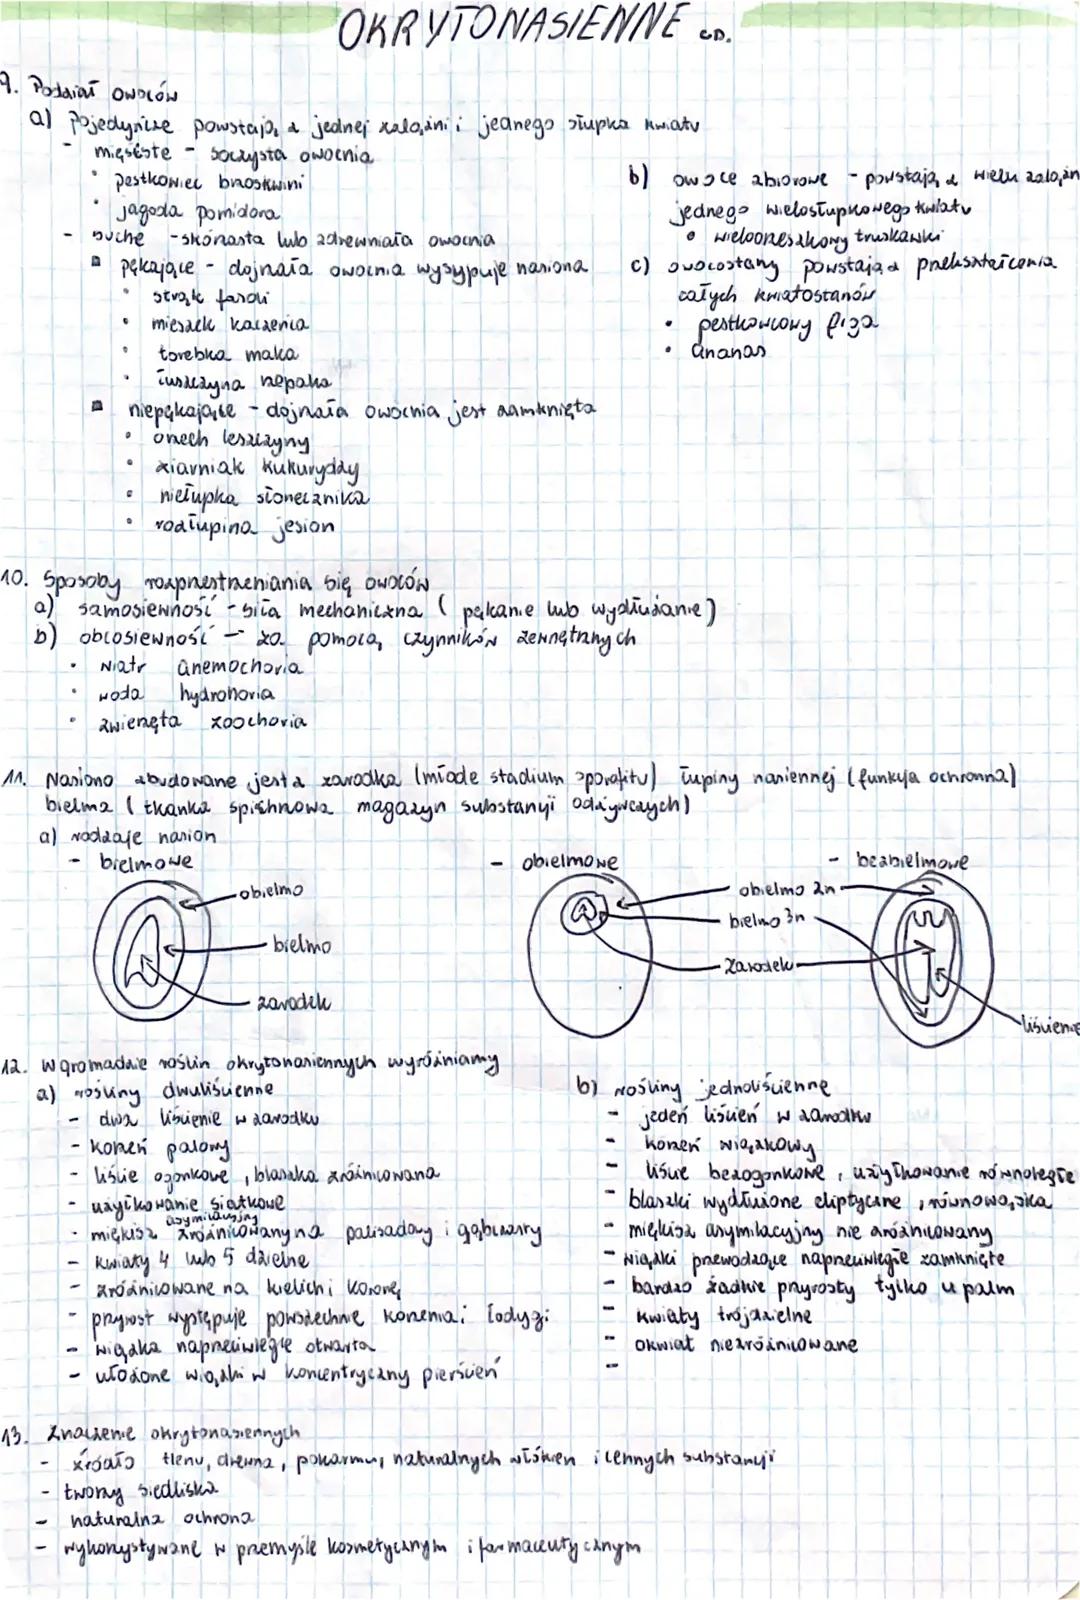 OKRYTONASIENNE CD.
9. Podział owoców
a) Pojedyncze powstają z jednej zalążni i jednego słupka kwiatu
- mięsiste - soczysta owocnia
• pestkowiec brzoskwini
• jagoda pomidora
- suche - skórzasta lub zdrewniała owocnia
▪ pękające - dojrzała owocnia wysypuje nasiona
• strąk fasoli
• mieszek kaczeńca
• torebka maka
• łuszczyna rzepaku
▪ niepękające - dojrzała owocnia jest zamknięta
• orzech leszczyny
• ziarniak kukurydzy
• niełupka słonecznika
• rozłupina jesion
b) owoce zbiorowe - powstają z wielu zalążn
jednego wielosłupkowego kwiatu
• wieloorzeszkowy truskawki
c) owocostany powstają z przekształcenia
całych kwiatostanów
• pestkowcowy figa
• ananas
10. Sposoby rozprzestrzeniania się owoców
a) samosiewność - siła mechaniczna (pękanie lub wydłużanie)
b) obcosiewność - za pomocą czynników zewnętrznych
• wiatr anemochoria
• woda hydrohoria
• zwierzęta zoochoria
11. Nasiono zbudowane jest z zarodka (młode stadium sporofitu) łupiny nasiennej (funkcja ochronna)
bielma (tkanka spichrzowa magazyn substancji odżywczych)
a) rodzaje nasion
- bielmowe - obielmowe - bezbielmowe
obielmo
bielmo
zarodek
obielmo 2n
bielmo 3n
zarodek
liścienie
12. W gromadzie roślin okrytonasiennych wyróżniamy
a) rośliny dwuliścienne
- dwa liścienie w zarodku
- korzeń palowy
- liście ogonkowe, blaszka zróżnicowana
- użyłkowanie siatkowe
- miękisz asymilacyjny zróżnicowany na palisadowy i gąbczasty
- kwiaty 4 lub 5 dzielne
- zróżnicowane na kielich i koronę
- przyrost występuje powszechnie korzenia i łodygi
- wiązka naprzeciwległe otwarta
- ułożone wiązki w koncentryczny pierścień
b) rośliny jednoliścienne
- jeden liścień w zarodku
- korzeń wiązkowy
- liście bezogonkowe, użyłkowanie równoległe
- blaszki wydłużone eliptyczne, równowąska
- miękisz asymilacyjny nie zróżnicowany
- wiązki przewodzące naprzeciwległe zamknięte
- bardzo żadkie przyrosty tylko u palm
- kwiaty trójdzielne
- okwiat niezróżnicowane
-
13. Znaczenie okrytonasiennych
- źródło tlenu, drewna, pokarmu, naturalnych włókien i cennych substancji
- tworzy siedliska
- naturalna ochrona
- wykorzystywane w przemyśle kosmetycznym i farmaceutycznym